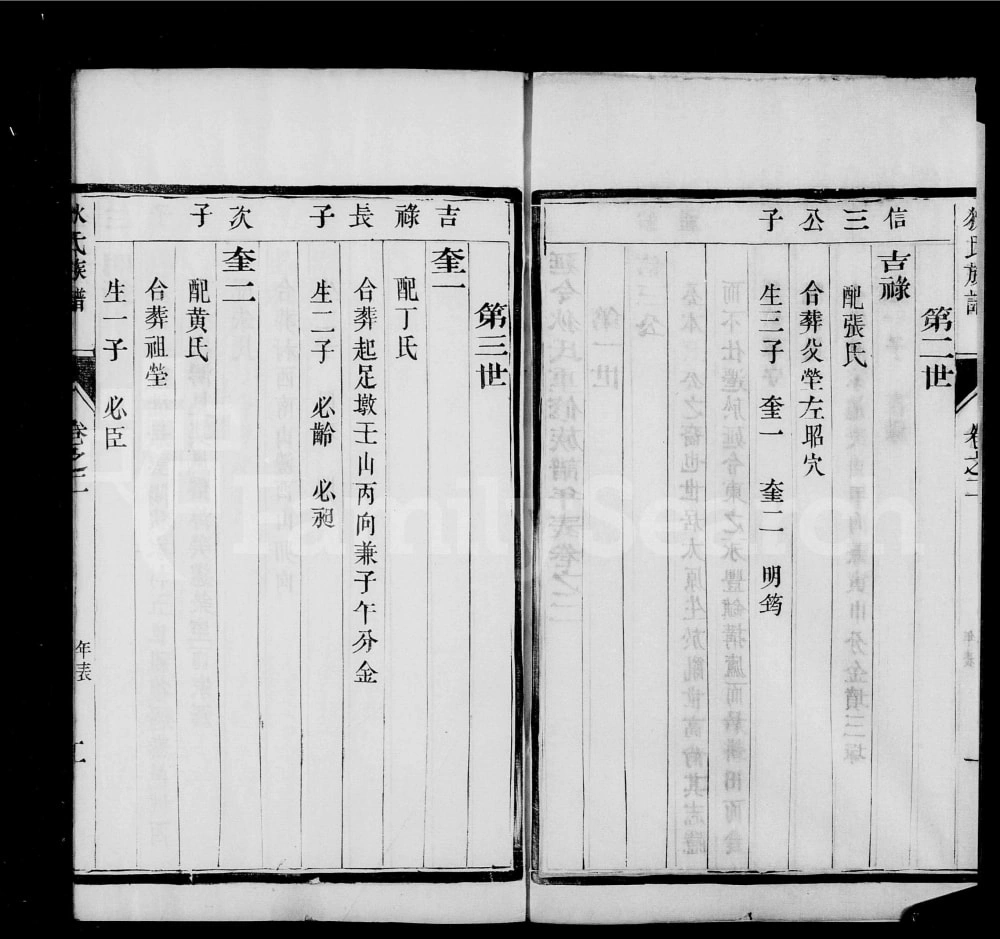 第二世
信三公子
吉祿
配張氏
合葬父塋左昭穴
生三子 奎一 奎二 明鸑
氏族譜
卷之二
年表
一
第三世
吉祿長子
奎一
配丁氏
合葬起足墩壬山丙向兼子午分金
生二子 必齡 必昶
次子
奎二
配黄氏
合葬祖塋
生一子 必臣
氏族譜
卷之二
年表
FamilySearch